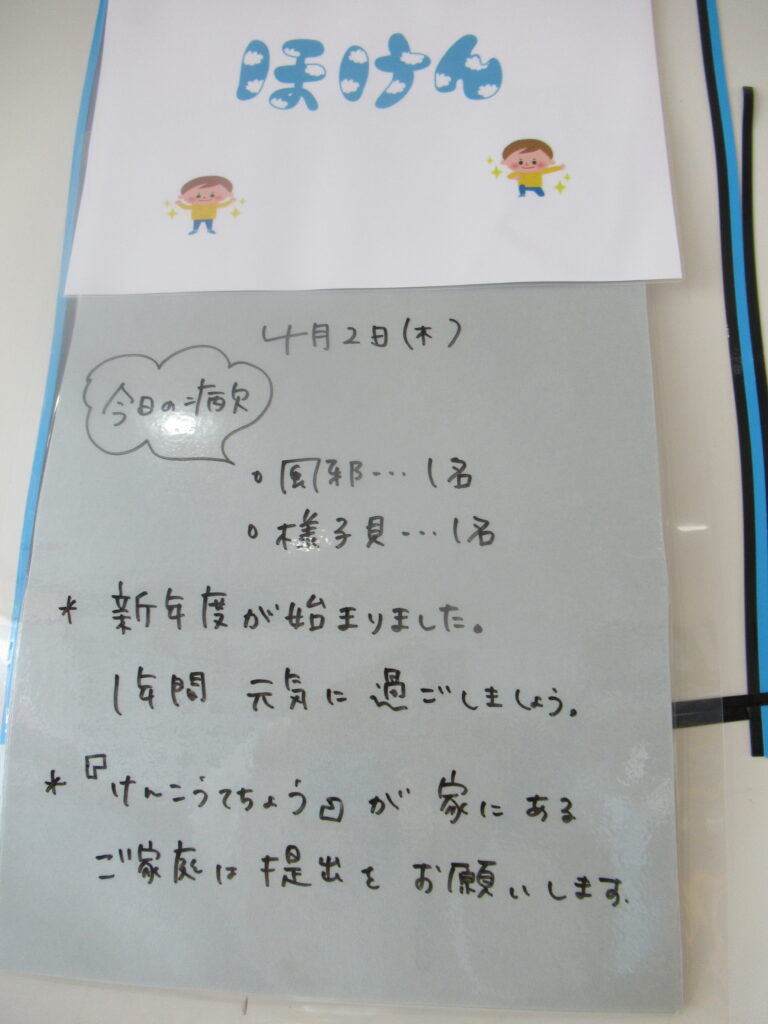 ほけん
4月2日(木)
今日の病欠
。風邪…1名
。様子見…1名
* 新年度が始まりました。
1年間 元気に過ごしましょう。
* 『けんこうてちょう』が家にある
ご家庭は提出をお願いします。